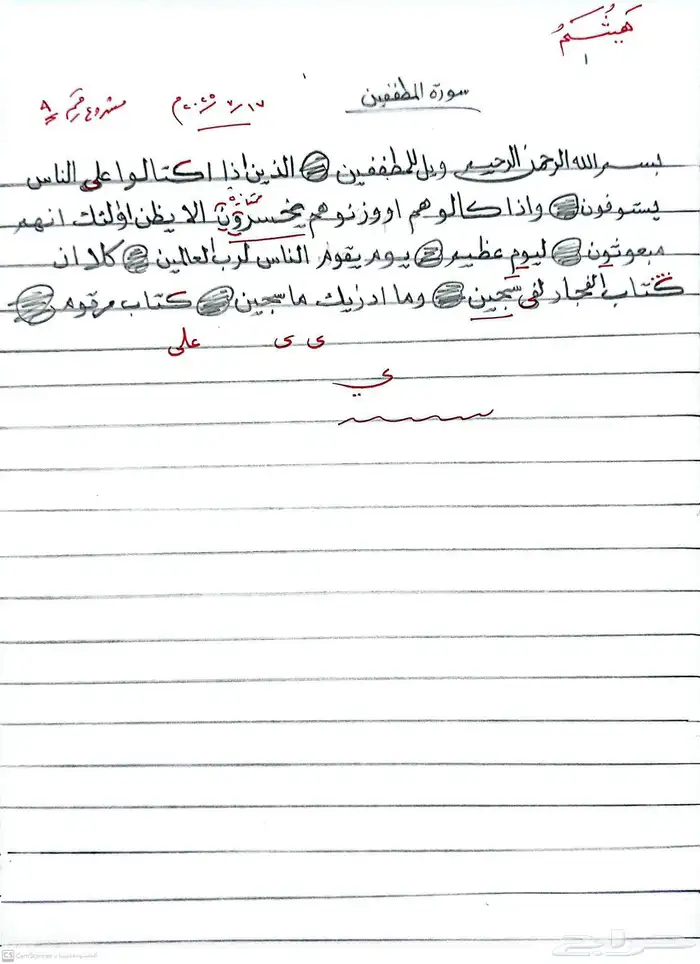 هَيثَمُ
١
سورة المطففين
١٧ / ٧ / ٢٠٢٥م
مشروع رقم ٨
بسم الله الرحمن الرحيم ويل للمطففين الذين اذا اكتالوا على الناس
يستوفون واذا كالوهم او وزنوهم يخسرون الا يظن اولئك انهم
مبعوثون ليوم عظيم يوم يقوم الناس لرب العالمين كلا ان
كتاب الفجار لفى سجين وما ادريك ما سجين كتاب مرقوم
ى ى على
ي
CS CamScanner
حراج